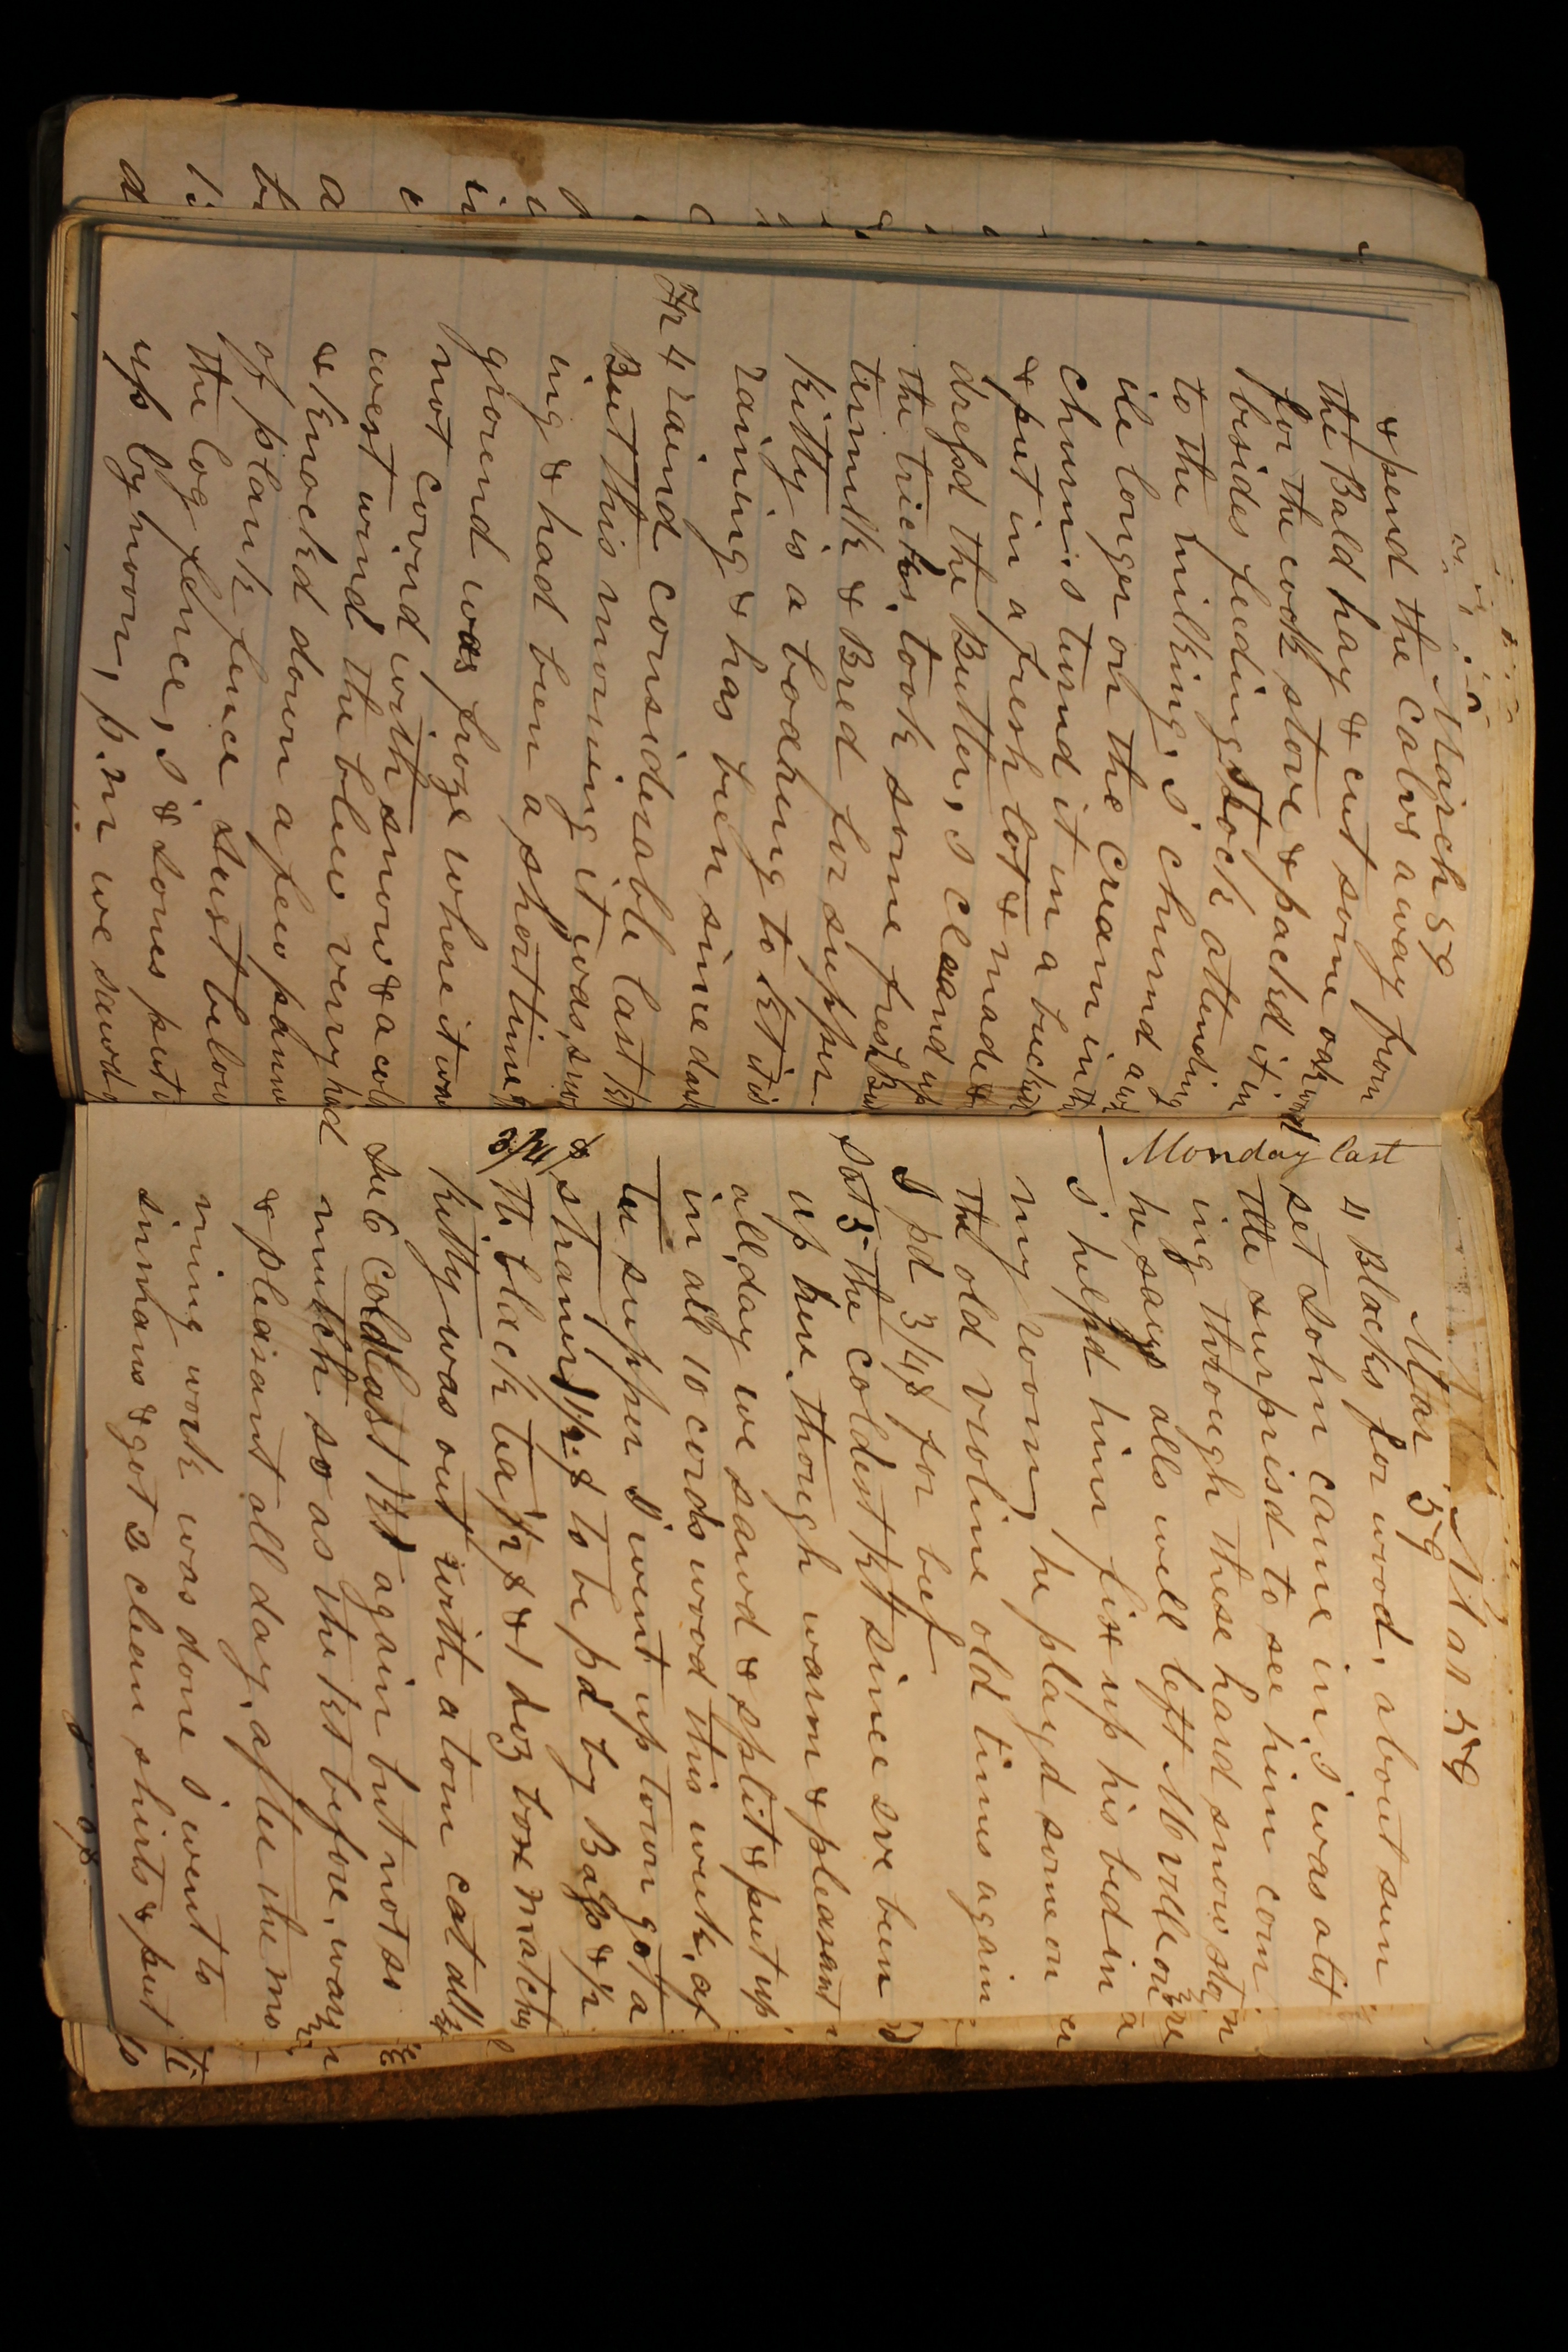 March 59
& pend the Calvs away from
the Bald hay & cut some oak wood
for the cook stove & packd it in
besides feeding stock attending
to the milking, i churnd awh
ile longer on the Cream in th
churn. i turnd it in a bucket
& put in a fresh lot & made &
dressd the Butter, i cleand up
the tricks, took some fresh But
termilk & Bred for supper
Kitty is a boohing to kt it is
raining & has been since dark
Fr 4 raind considerable last kt
But this morning it was snow
ing & had been a short time
ground was froze where it was
not covird with snow & a cold
west wind the blew very hard
& knockd down a few pannel
of plank fence just below
the log fence, i & Jones put it
up by noon, p.m we sawd
Mar 59
Mar 59
4 Blocks for wood, about sun
set John came in, i was a lit
tle surprisd to see him com
ing through these hard snow storm
he says alls well left M ville on
i helpd him fix up his bed in
my room, he playd some on
the old violine old times again
I pd 3/4$ for beef
Monday last
Sat 5 the coldest kt since ive been
up here though warm & pleasant
all day we sawd & split & put up
in all 10 cords wood this week, af
ter supper i went up town got a
strainer 1/2$ to be pd by Bass & 1/2
lb black tea 1/2$ & 1 doz box matches
3/4 $
kitty was out with a tom cat all kt
Su 6 Cold last kt again but not so
mutch so as the kt before, warm
& pleasant all day, after the mo
rning work was done i went to
sinkans & got 2 clean shirts & put